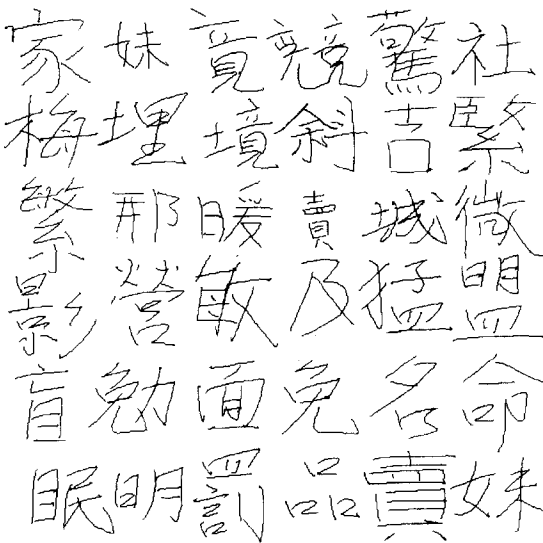 家妹竟競驚社
梅埋境斜吉緊
繁邢暖賣城微
影營敏及猛盟
盲勉面免名命
眠明罰品賣妹